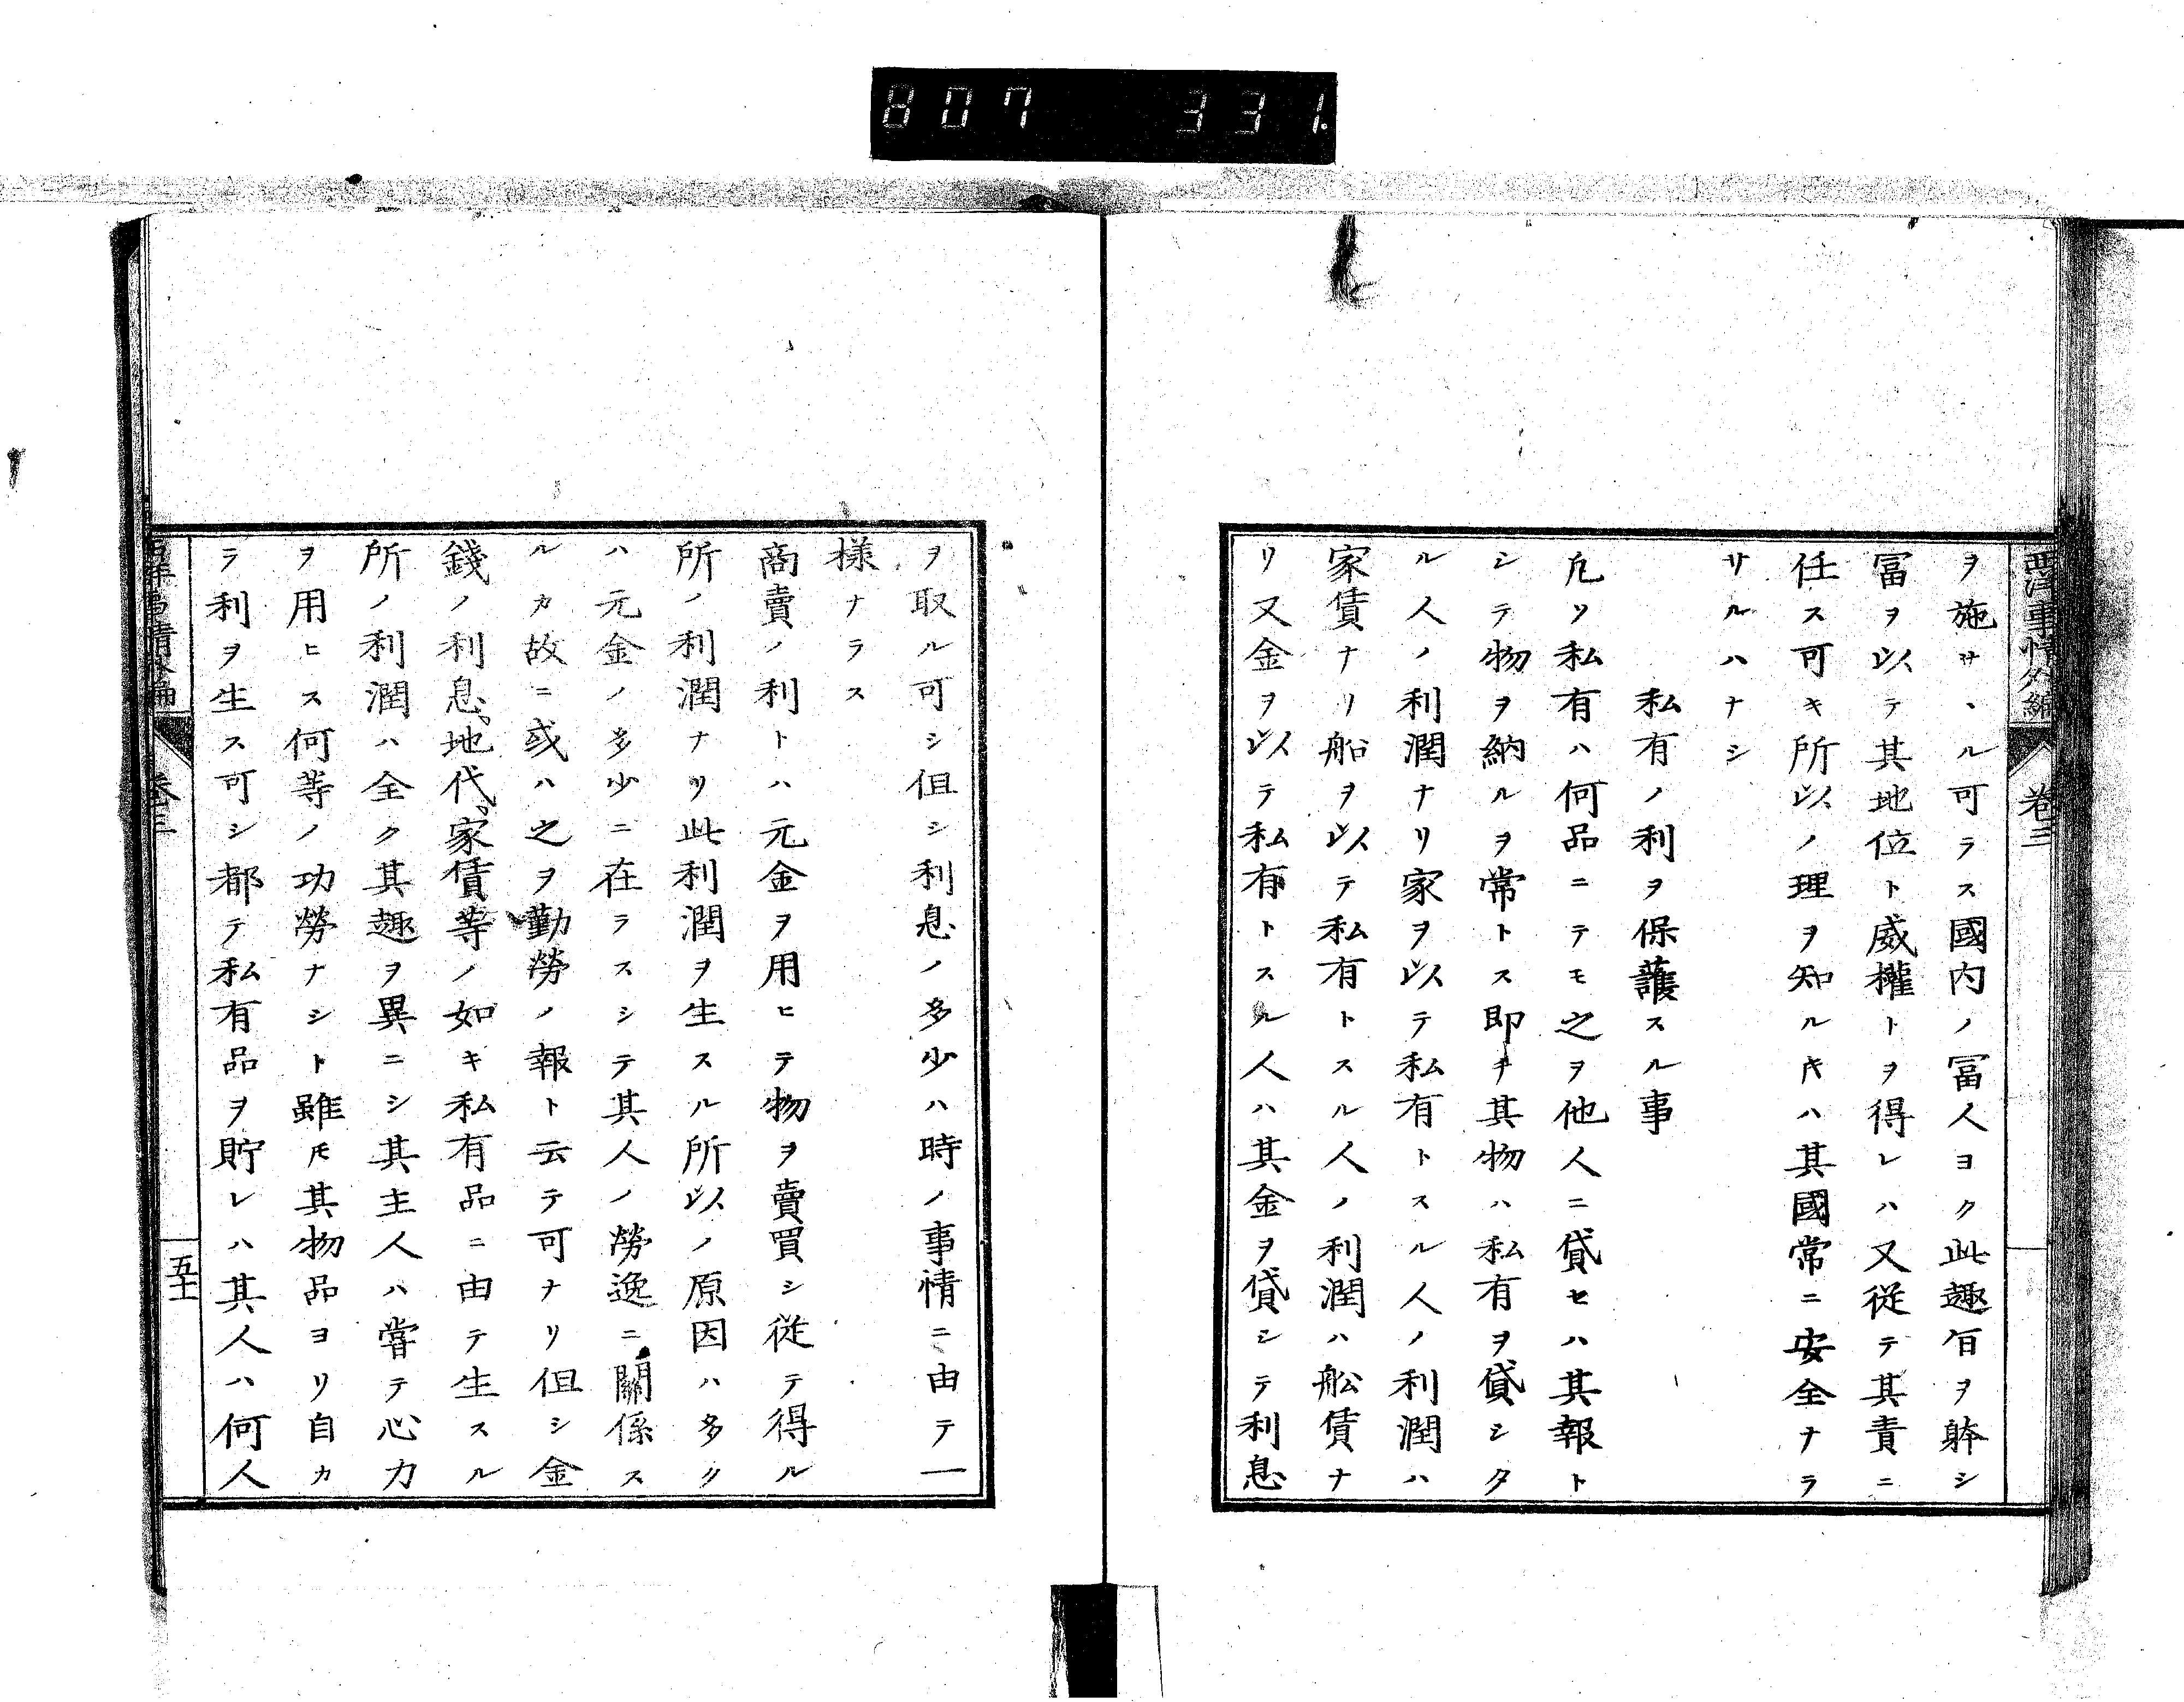 807 331.
西洋事情外編 卷三
ヲ施サヽル可ラス國内ノ冨人ヨク此趣旨ヲ躰シ
冨ヲ以テ其地位ト威權トヲ得レハ又從テ其責ニ
任ス可キ所以ノ理ヲ知ルキハ其國常ニ安全ナラ
サルハナシ
私有ノ利ヲ保護スル事
凡ソ私有ハ何品ニテモ之ヲ他人ニ貸セハ其報ト
シテ物ヲ納ルヲ常トス即チ其物ハ私有ヲ貸シタ
ル人ノ利潤ナリ家ヲ以テ私有トスル人ノ利潤ハ
家賃ナリ船ヲ以テ私有トスル人ノ利潤ハ舩賃ナ
リ又金ヲ以テ私有トスル人ハ其金ヲ貸シテ利息
ヲ取ル可シ但シ利息ノ多少ハ時ノ事情ニ由テ一
樣ナラス
商賣ノ利トハ元金ヲ用ヒテ物ヲ賣買シ從テ得ル
所ノ利潤ナリ此利潤ヲ生スル所以ノ原因ハ多ク
ハ元金ノ多少ニ在ラスシテ其人ノ勞逸ニ關係ス
ルカ故ニ或ハ之ヲ勤勞ノ報ト云テ可ナリ但シ金
錢ノ利息、地代、家賃等ノ如キ私有品ニ由テ生スル
所ノ利潤ハ全ク其趣ヲ異ニシ其主人ハ嘗テ心力
ヲ用ヒス何等ノ功勞ナシト雖𪜈其物品ヨリ自カ
ラ利ヲ生ス可シ都テ私有品ヲ貯レハ其人ハ何人
卷三
五十